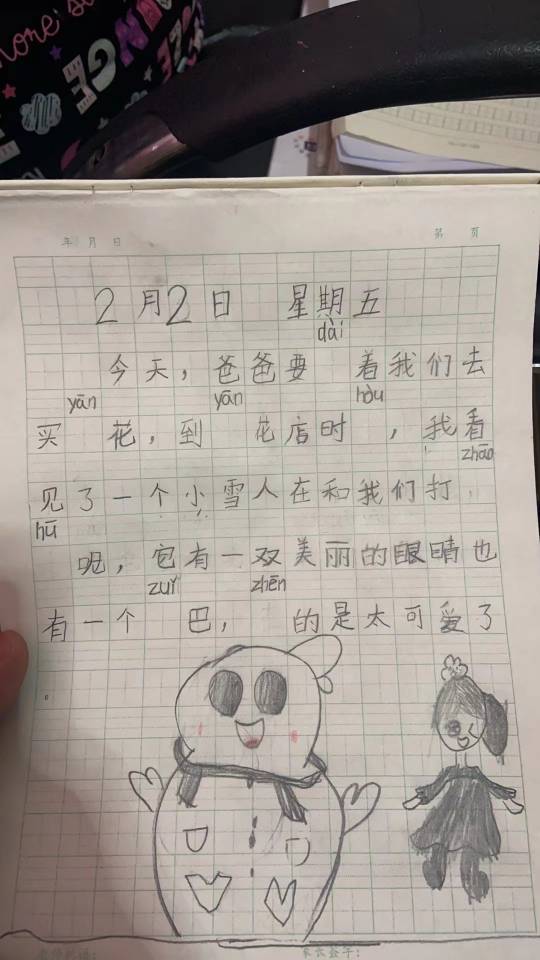 年 月 日
第 页
2月2日 星期五
dài
今天，爸爸要 着我们去
yān yān hòu
买 花，到 花店时 ，我看
zhāo
见了一个小雪人在和我们打
hū
呢，它有一双美丽的眼睛也
zuǐ zhēn
有一个 巴， 的是太可爱了
。
家长签字：